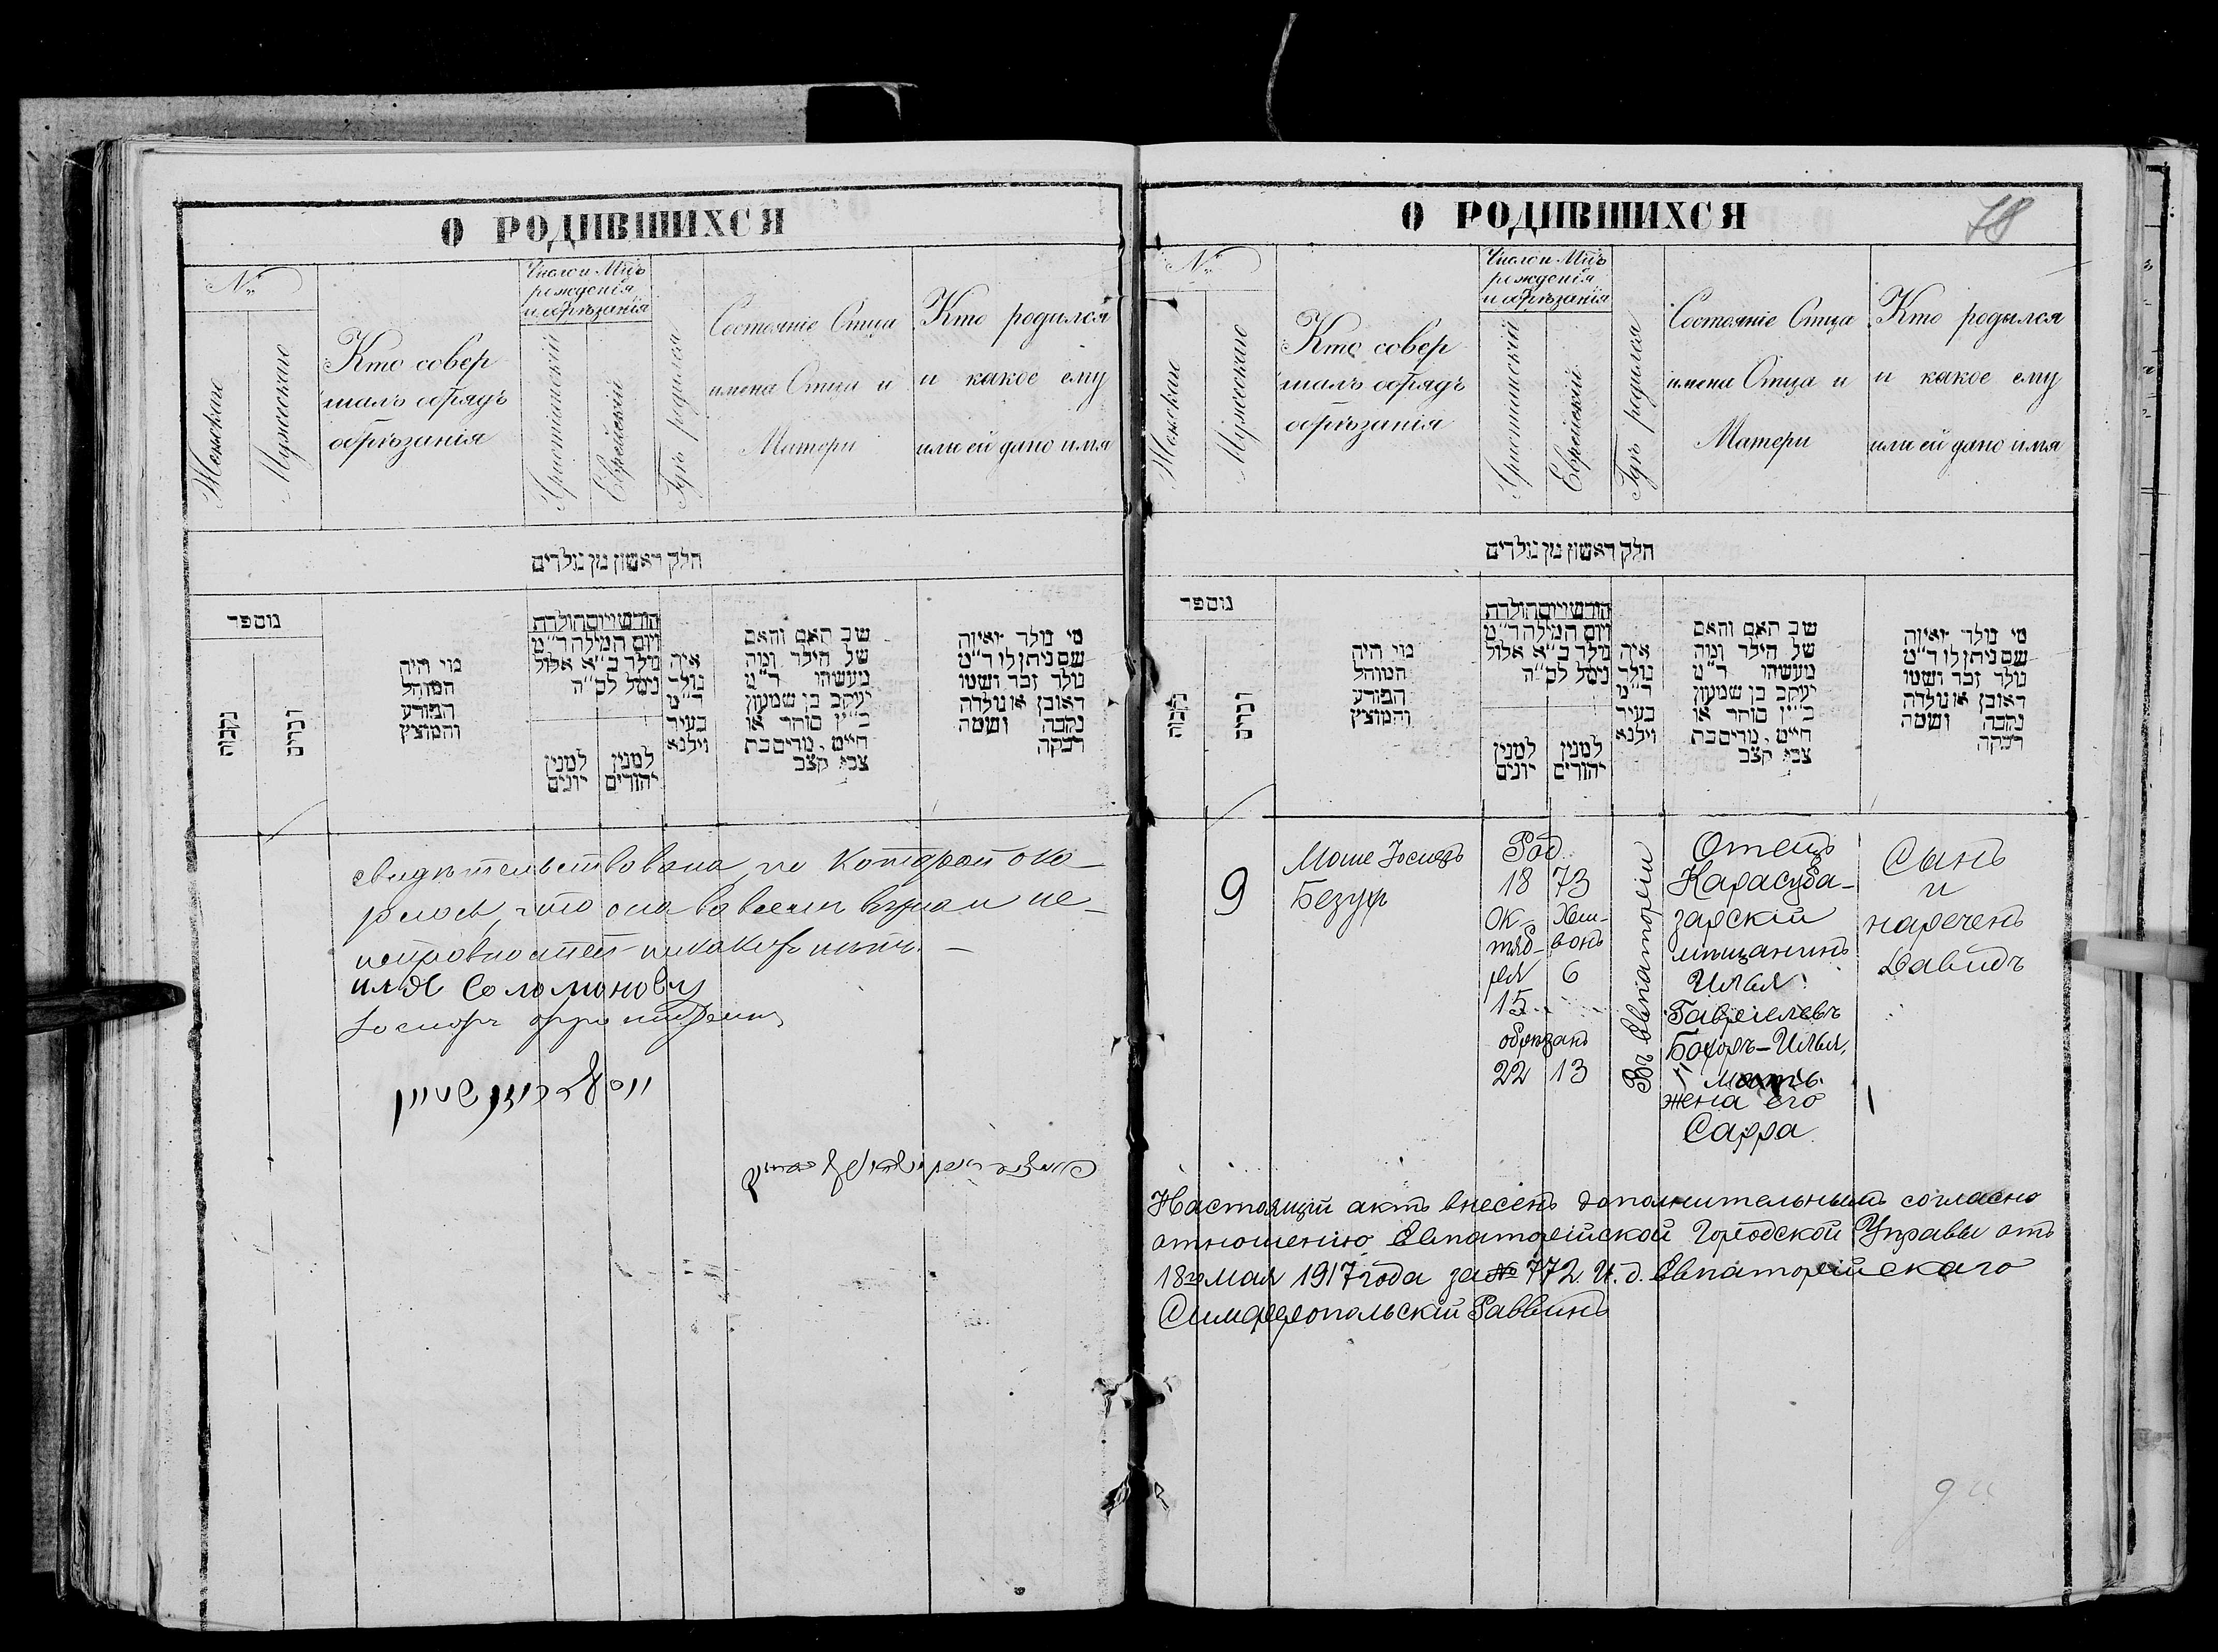 О РОДИВШИХСЯ
№
Женскаго
Мужескаго
Кто совер
шалъ обрядъ
обрѣзанія
Число и Мцъ
рожденія
и обрѣзанія
Христіанскій
Еврейскій
Гдѣ родился
Состояніе Отца
имена Отца и
Матери
Кто родился
и какое ему
или ей дано имя
חלק ראשון מן נולדים
מספר
נקבות
זכרים
מי היה
המוהל
הפורע
והמוצץ
חודש ויום הולדת
ויום המילה ד״מ
נולד ב״א אלול
נימל לס״ה
למנין
יונים
למנין
יהודים
איה
נולד
ד״מ
בעיר
ווילנא
שב האם והאם
של הילד ומה
מעשהו ד״מ
יעקב בן שמעון
כ״ץ סוחר או
חייט, מרים בת
צבי קצב
מי נולד ואיזה
שם ניתן לו ד״מ
נולד זכר ושמו
ראובן או נולדה
נקבה ושמה
רבקה
свидѣтельствована, по которой ока-
релось, что она во всемъ вѣрна и не-
исправностей никакихъ нѣтъ. —
илья Соломоновъ
О РОДИВШИХСЯ
78
№
Женскаго
Мужескаго
Кто совер
шалъ обрядъ
обрѣзанія
Число и Мцъ
рожденія
и обрѣзанія
Христіанскій
Еврейскій
Гдѣ родился
Состояніе Отца
имена Отца и
Матери
Кто родился
и какое ему
или ей дано имя
חלק ראשון מן נולדים
מספר
נקבות
זכרים
מי היה
המוהל
הפורע
והמוצץ
חודש ויום הולדת
ויום המילה ד״מ
נולד ב״א אלול
נימל לס״ה
למנין
יונים
למנין
יהודים
איה
נולד
ד״מ
בעיר
ווילנא
שב האם והאם
של הילד ומה
מעשהו ד״מ
יעקב בן שמעון
כ״ץ סוחר או
חייט, מרים בת
צבי קצב
מי נולד ואיזה
שם ניתן לו ד״מ
נולד זכר ושמו
ראובן או נולדה
נקבה ושמה
רבקה
9
Моше Іосифъ
Безуф
Род
18 73
Ок- Хеш-
тяб- вонъ
ря 6
15
обрѣзанъ
22 13
Въ Евпаторіи
Отецъ
Карасуба-
зарскій
мѣщанинъ
Илья
Гавріелевъ
Бохоръ-Илья,
мать
жена его
Сарра
Сынъ
и
нареченъ
Давидъ
Настоящій актъ внесенъ дополнительнымъ согласно
отношенію Евпаторійской Городской Управы отъ
18го мая 1917 года за № 772. И. д. Евпаторійскаго
Симферопольскій Раввинъ